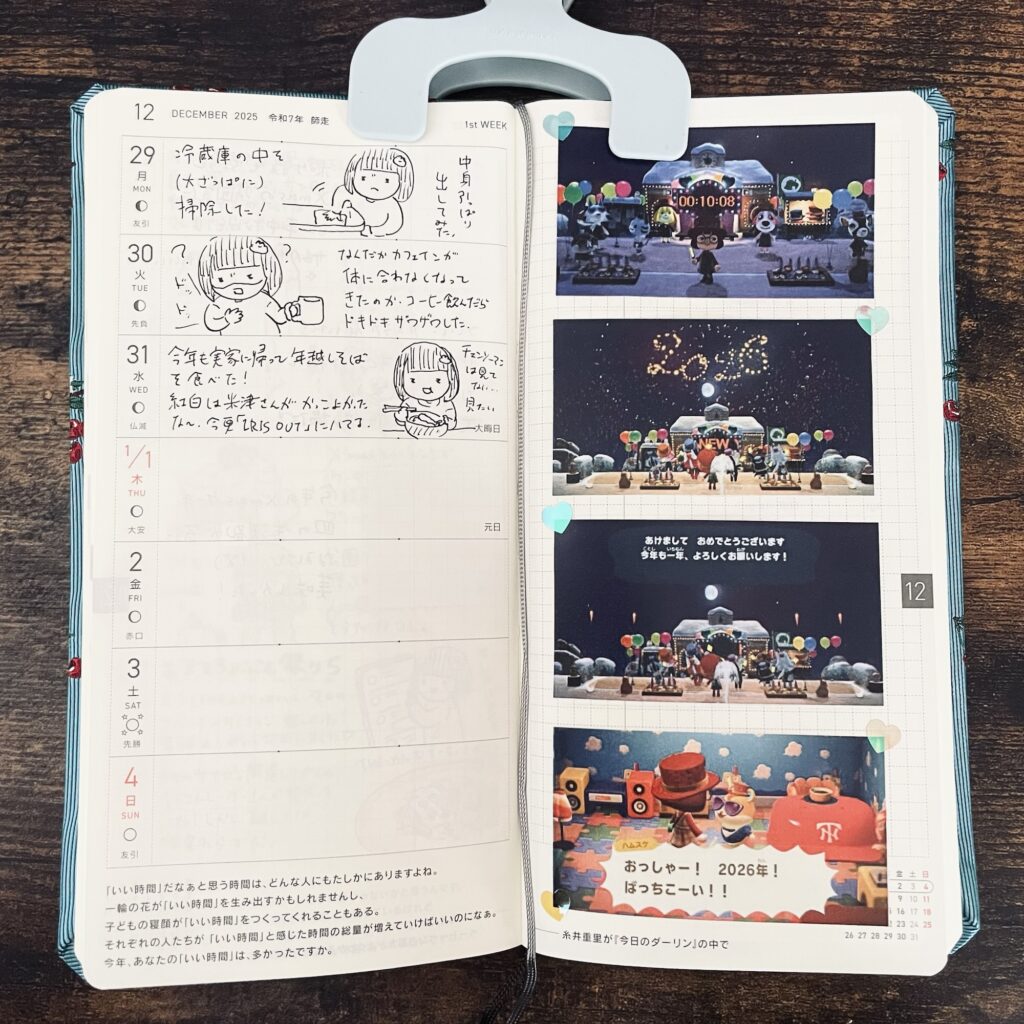 12 DECEMBER 2025 令和7年 師走
1st WEEK
29
月
MON
友引
冷蔵庫の中を
(大ざっぱに)
掃除した!
中身引っぱり
出してみた。
30
火
TUE
先負
? ?
ドッ
ドッ
なんだかカフェインが
体に合わなくなって
きたのか、コーヒー飲んだら
ドキドキザワザワした。
31
水
WED
仏滅
今年も実家に帰って年越しそば
を食べた!
紅白は米津さんがかっこよかった
な〜、今更「IRIS OUT」にハマる。
チェンソーマン
は見て
ない…
見たい
大晦日
1/1
木
THU
大安
元日
2
金
FRI
赤口
3
土
SAT
先勝
4
日
SUN
友引
「いい時間」だなぁと思う時間は、どんな人にもたしかにありますよね。
一輪の花が「いい時間」を生み出すかもしれませんし、
子どもの寝顔が「いい時間」をつくってくれることもある。
それぞれの人たちが「いい時間」と感じた時間の総量が増えていけばいいのになぁ。
今年、あなたの「いい時間」は、多かったですか。
00:10:08
2026
NEW
あけまして おめでとうございます
今年も一年、よろしくお願いします!
12
ハムスケ
おっしゃー! 2026年!
ばっちこーい!!
金 土 日
2 3 4
9 10 11
16 17 18
23 24 25
26 27 28 29 30 31
糸井重里が『今日のダーリン』の中で